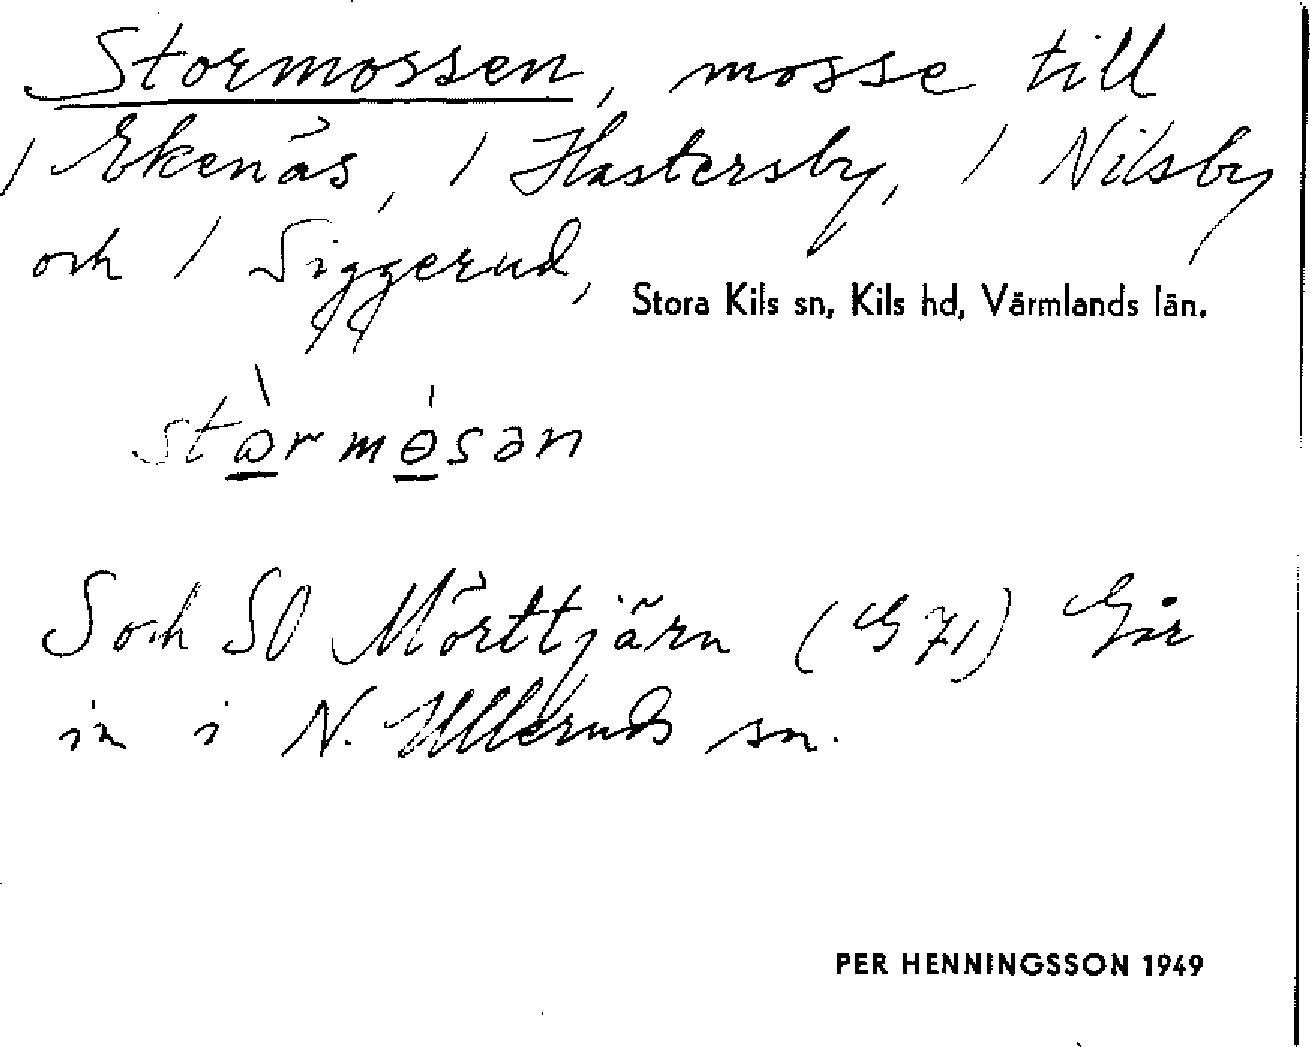 Stormossen, mosse till
/ Ekenäs, / Hastersby, / Nilsby
och / Siggerud,
Stora Kils sn, Kils hd, Värmlands län.
stòrmɵ́sən
S och SO Mörttjärn (G 71) Går
in i N. Ulleruds sn.
PER HENNINGSSON 1949